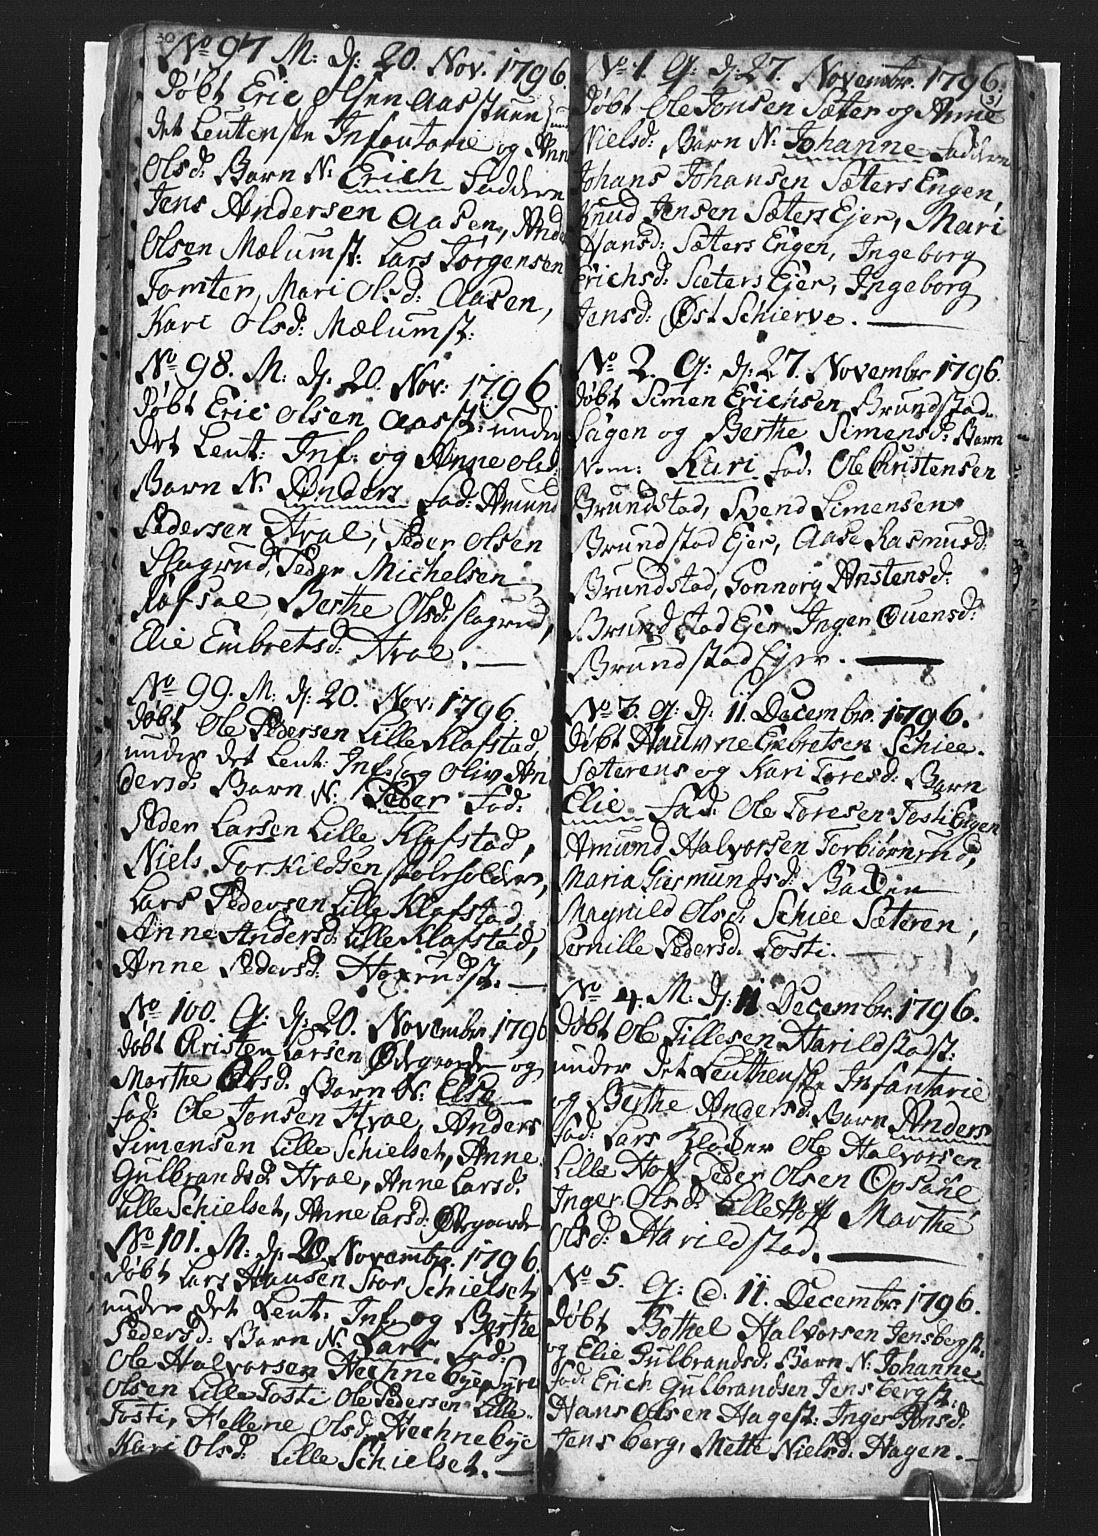 30
No 97 M: dj: 20. Nov. 1796.
døbt Eric Olsen Aasstuen
det Leutenske Infantarie og Ann
Olsd: Barn N: Erich Faddern
Jens Andersen Aasen, Ande
Olsen Mælumst: Lars Jørgensen
Tomter, Mari Olsd: Aasen,
Kari Olsd: Mælumst:
No 98. M: dj: 20. Nov: 1796
døbt Eric Olsen Aasst: under
det Leut: Inf: og Anne Olsd:
Barn N: Anders Fad: Amund
Pedersen Hval, Peder Olsen
Slagrud, Peder Michelsen
Røfsal, Berthe Olsd: Slagrud,
Elie Embretsd: Hval. —
No 99. M: dj: 20. Nov: 1796.
døbt Ole Pedersen Lille Klafstad,
under det Leut: Inf: og Oliv An
dersd: Barn N: Peder Fad:
Peder Larsen Lille Klafstad,
Niels Torkildsen
Lars Pedersen Lille Klafstad
Anne Andersd: Lille Klafstad,
Anne Pedersd: —
No 100. Q: dj: 20. Novembr. 1796
døbt Cristen Larsen Ødegaarde og
Marthe Olsd: Barn N: Else
Fad: Ole Jonsen Hval, Anders
Simensen Lille Schielset, Anne
Gulbrandsd: Hval, Anne Larsd:
Lille Schielset, Anne Larsd: Ødegaarde
No 101. M: dj 20 Novembr. 1796.
døbt Lars Hansen Stor Schielset
under det Leut: Inf: og Berthe
Pedersd: Barn N: Lars Fad:
Ole Halvorsen Hechnebye, Syve
Olsen Lille Tosti Ole Pedersen Lille
Tosti, Hellene Olsd: Hechnebye
Kari Olsd: Lille Schielset. —
31
No 1. Q: dj: 27. Novembr. 1796.
døbt Ole Jonsen Sæter og Anne
Nielsd: Barn N: Johanne Faddern
Johans Johansen Sæters Engen,
Knud Jensen Sæters Ejer, Mari
Hansd: Sæters Engen, Ingeborg
Erichsd: Sæters Ejer, Ingeborg
Jensd: Øst Schierve. —
No 2. Q: dj: 27. Novembr 1796.
døbt Simen Erichsen Brundstad
Sagen og Berthe Simensd: Barn
Nom: Kari Fad: Ole Christensen
Brundstad, Svend Simensen
Brundstad Ejer, Aase Rasmusd:
Brundstad, Gonnorg Anstensd:
Brundstad Ejer Inger Ouensd:
Brundstad Ejer. —
No 3. Q: dj: 11 Decembr. 1796.
døbt Embretsen Schiee
Sæterens og Kari Toresd: Barn
Elie Fad: Ole Toresen Tosti Engen
Amund Halvorsen Torbiørnrud,
Maria Giermundsd:
Magnild Olsd: Schiee Sæteren,
Pernille Pedersd: Tosti. —
No 4. M: dj: 11 Decembr. 1796.
døbt Ole Tillesen Harildstadst:
under det Leuthenske Infantarie
og Berthe Andersd: Barn Anders
Fad: Lars Ole Halvorsen
Lille Hoff Peder Olsen Opsahl
Inger Olsd: Lille Hoff Marthe
Olsd: Harildstad. —
No 5. Q: D: 11. Decembr. 1796.
døbt Bothel Halvorsen Jensbergst:
og Elie Gulbrandsd: Barn N: Johanne
Fad: Erich Gulbrandsen Jensbergst.
Hans Olsen Hagest: Inger Jonsd:
Jensberg, Mette Nielsd: Hagen. —